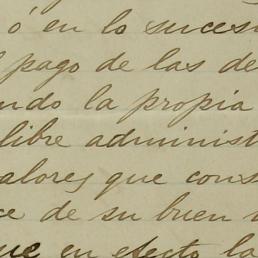 ó en lo suces
pago de las de
ndo la propia
libre administ
alores que cons
ce de su buen
ue en efecto la